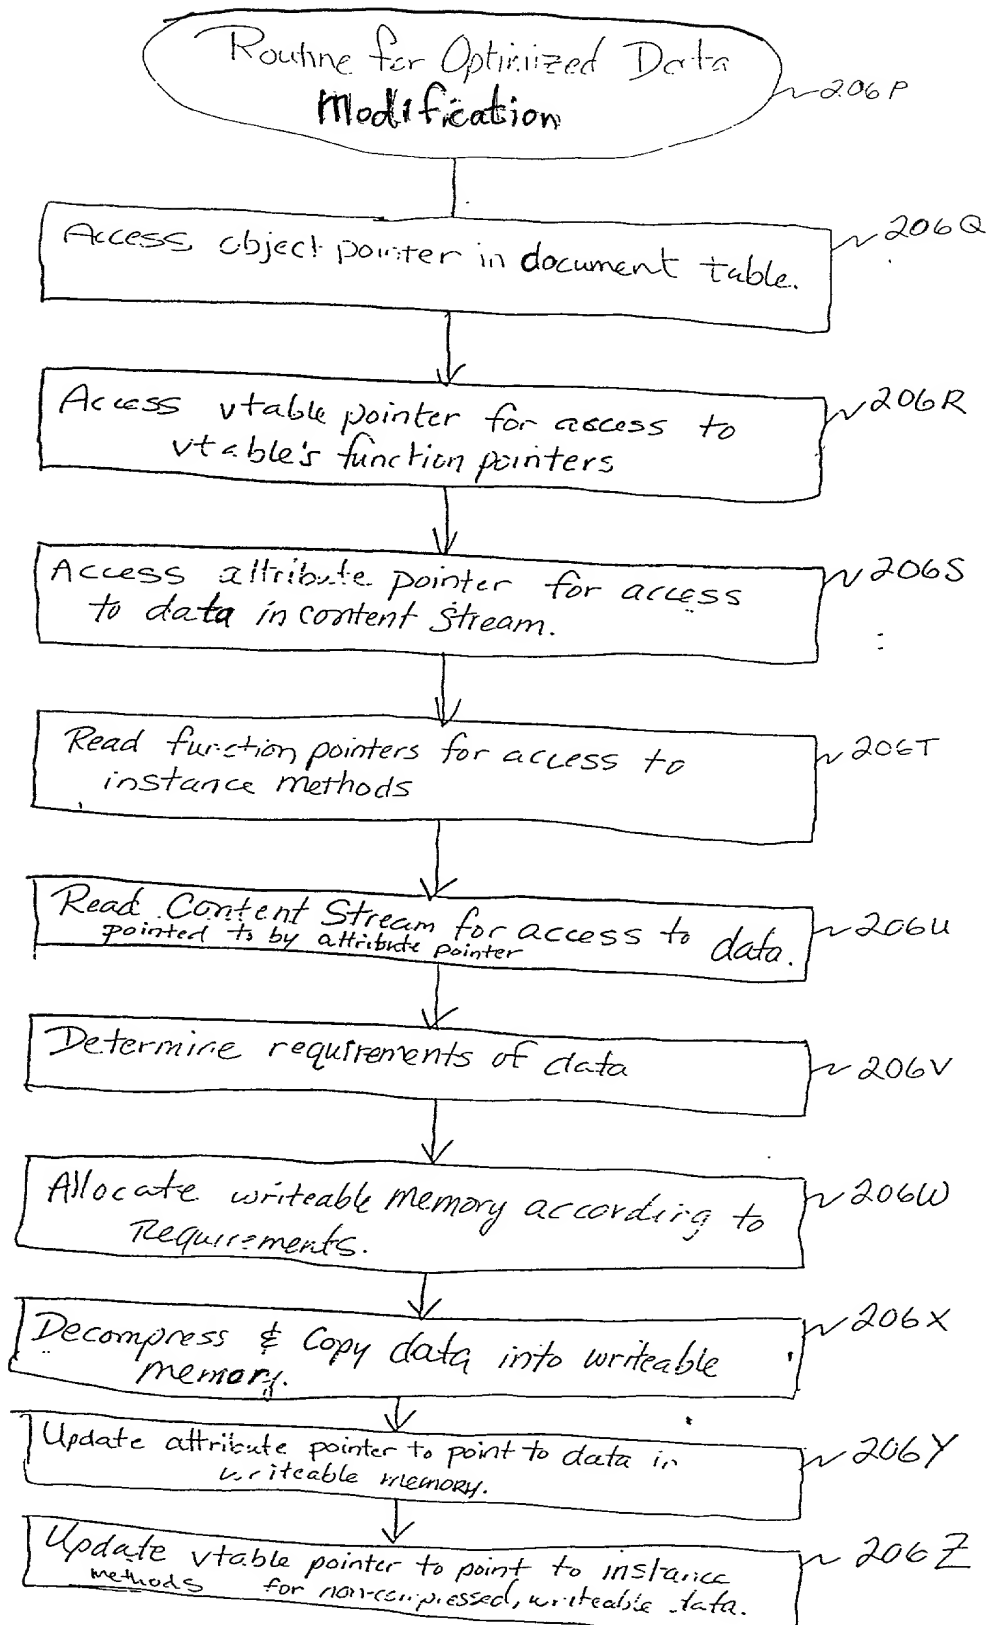 Routine for Optimized Data
Modification
206P
Access object pointer in document table.
206Q
Access vtable pointer for access to
vtable's function pointers
206R
Access attribute pointer for access
to data in content stream.
206S
Read function pointers for access to
instance methods
206T
Read Content Stream for access to data.
pointed to by attribute pointer
206U
Determine requirements of data
206V
Allocate writeable memory according to
Requirements.
206W
Decompress & Copy data into writeable
memory.
206X
Update attribute pointer to point to data in
writeable memory.
206Y
Update vtable pointer to point to instance
methods for non-compressed, writeable data.
206Z